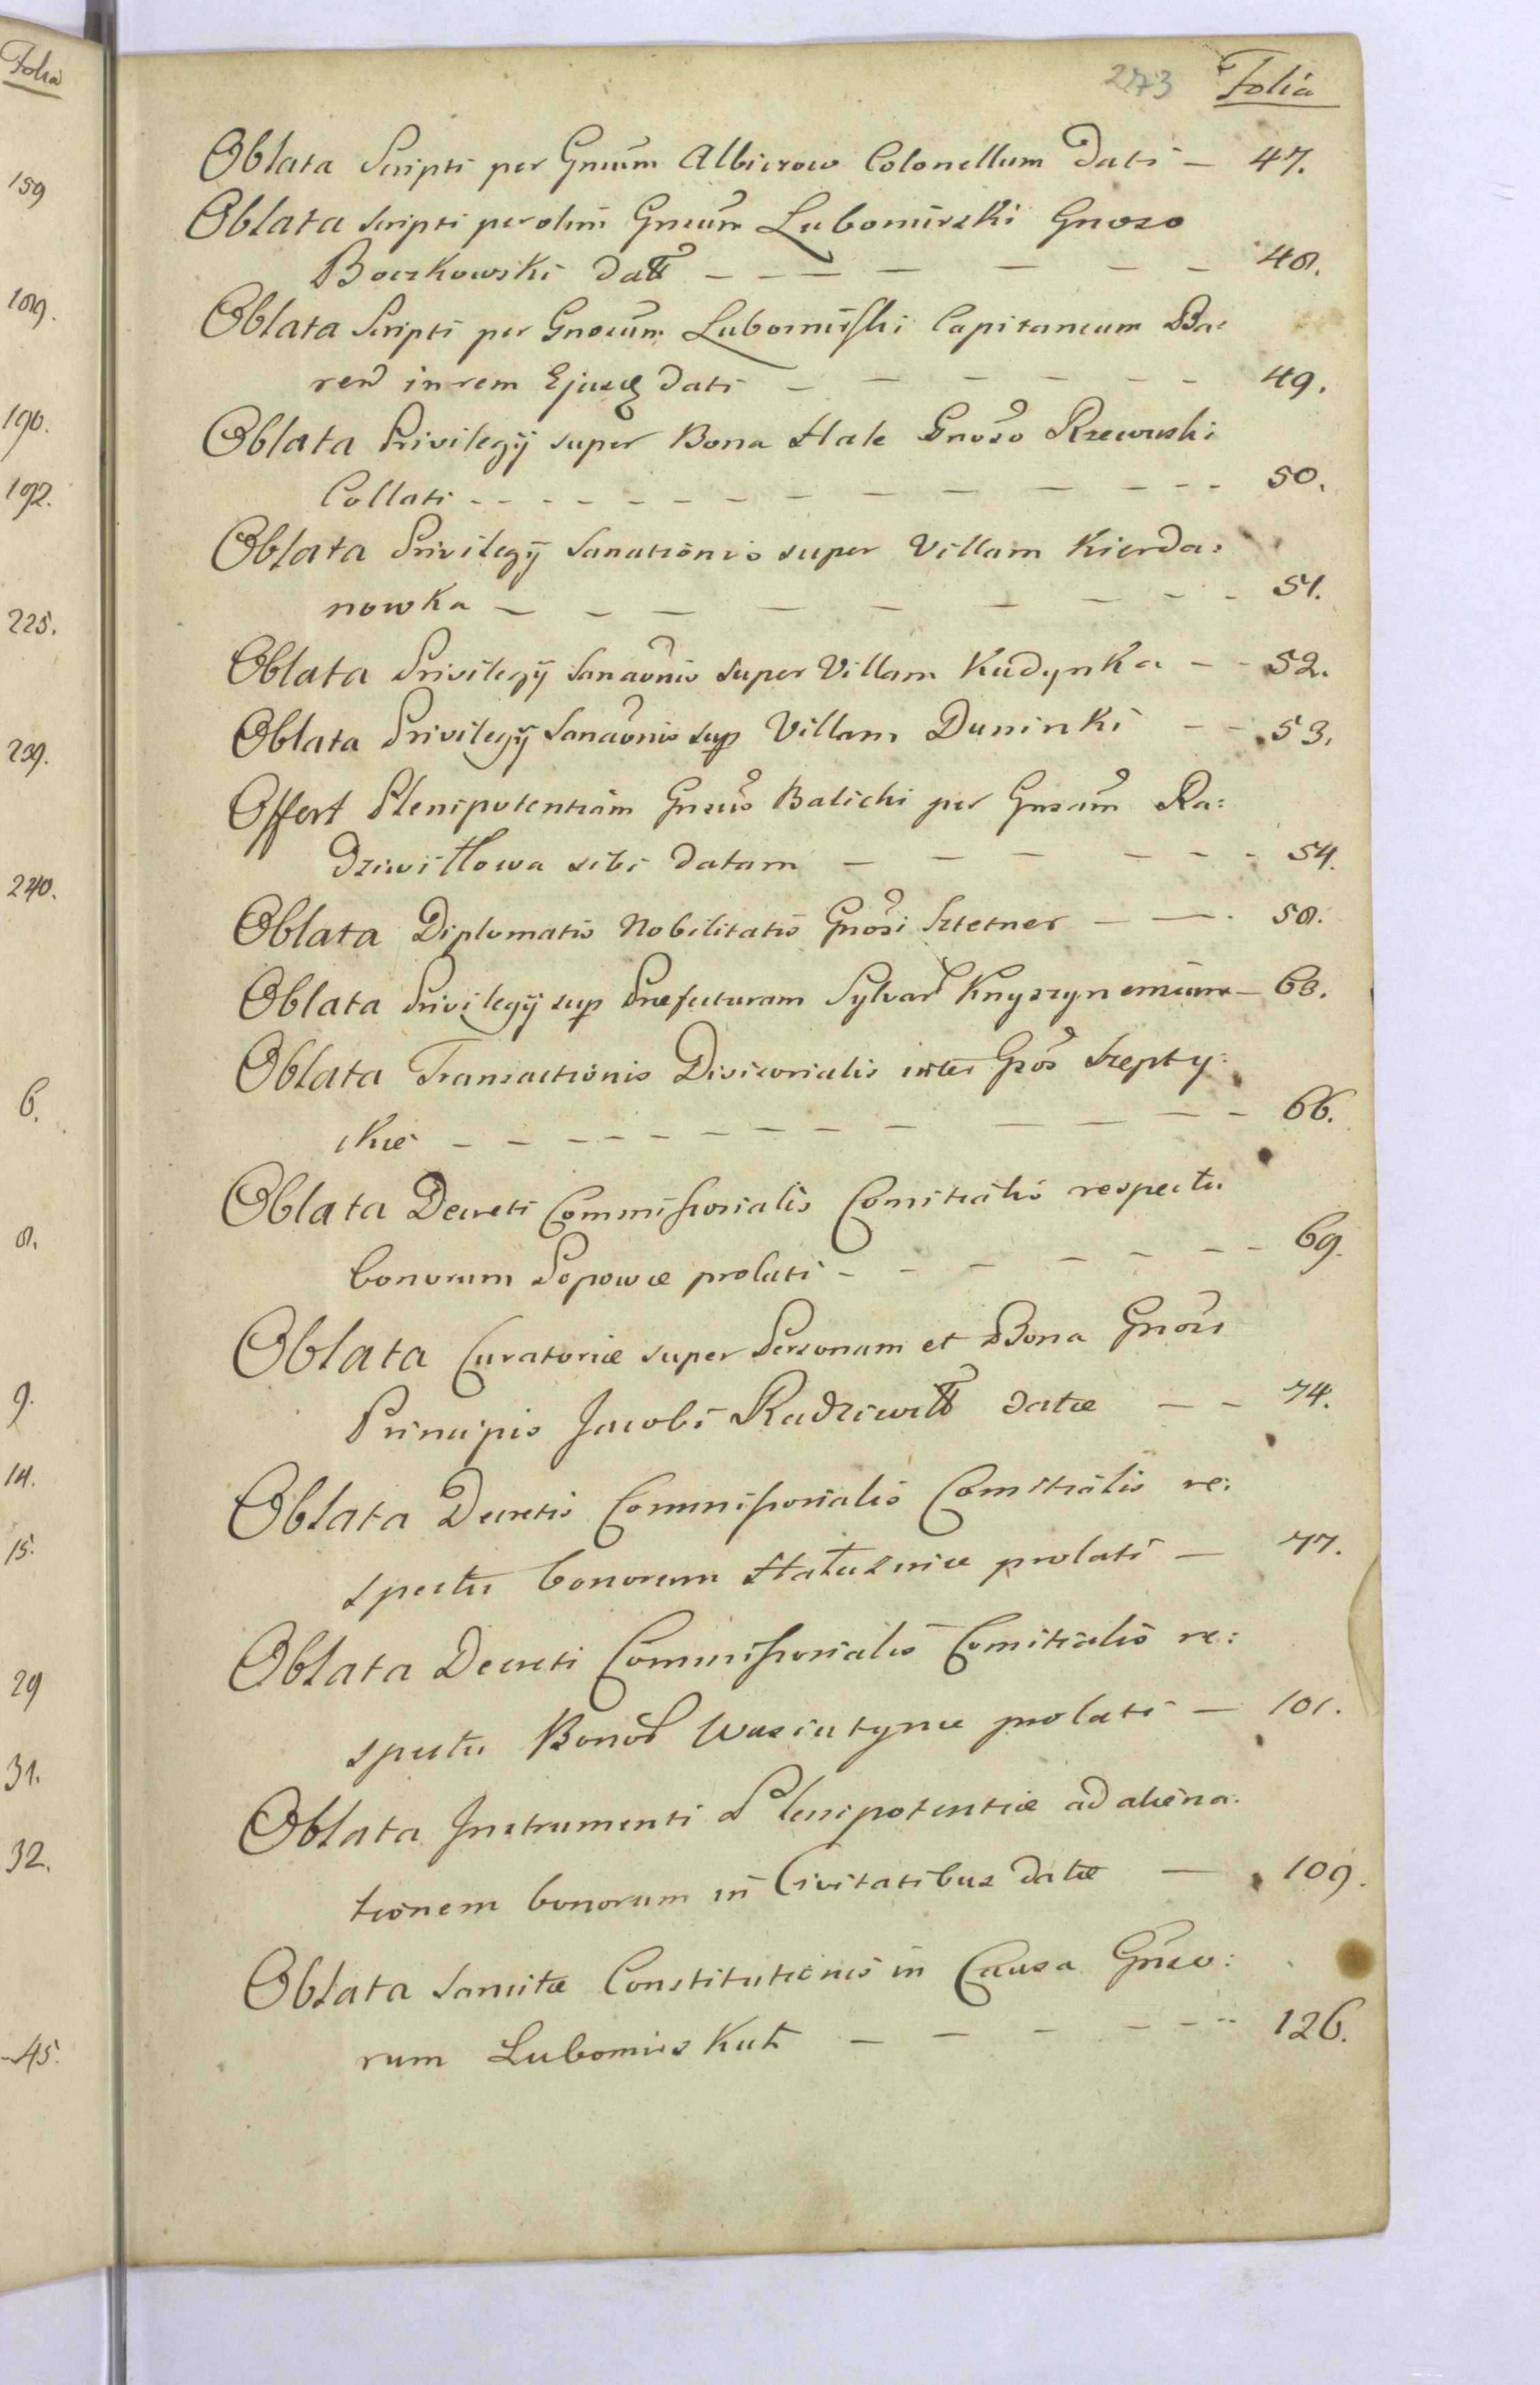 Folia
159
189.
190.
192.
225.
239.
240.
6.
8.
9.
14.
15.
29
31.
32.
45.
273 Folia
Oblata Scripti per Gneum Albierow Colonellum Dati — 47.
Oblata scripti per olim Gneum Lubomirski Gnoso
Boczkowski Datt — — — — — — — 48.
Oblata Scripti per Gnosum Lubomirski Capitaneum Ba:
ren in rem Ejusq Dati — — — — — — 49.
Oblata Privilegij super Bona Hale Gnoso Rzewuski
Collati - - - - - - - - - - - - - 50.
Oblata Privilegij Sanationis super Villam Kierda:
nowka — — — — — — — - - 51.
Oblata Privilegij Sanaonis super Villam Kudynka - - 52.
Oblata Privilegij Sanaonis sup Villam Duninki - - 53.
Offert Plenipotentiam Gnsus Balicki per Gnsam Ra:
dziwiłłowa sibi datam — — — — - - 54.
Oblata Diplomatis Nobilitatis Gnosi Sztetner — — 58.
Oblata Privilegij sup Præfecturam Sylvar Knyszynensium — 63.
Oblata Transactionis Divisorialis inter Gsos Szepty:
ckie - - - - - - - - - - — - - 66.
Oblata Decreti Commissorialis Comitialis respectu
bonorum Popowce prolati - - - - - - - 69.
Oblata Curatoriæ super Personam et Bona Gnosi
Principis Jacobi Radziwiłł datæ — - 74.
Oblata Decretis Commissorialis Comitialis re:
spectu bonorum Hałuznice prolati — 77.
Oblata Decreti Commissorialis Comitialis re:
spectu Bonor Wasiutynce prolati — 101.
Oblata Instrumenti Plenipotentiæ ad aliena:
tionem bonorum in Civitatibus datæ — 109.
Oblata Sancitæ Constitutionis in Causa Gnso:
rum Lubomirskich — — — - - - 126.